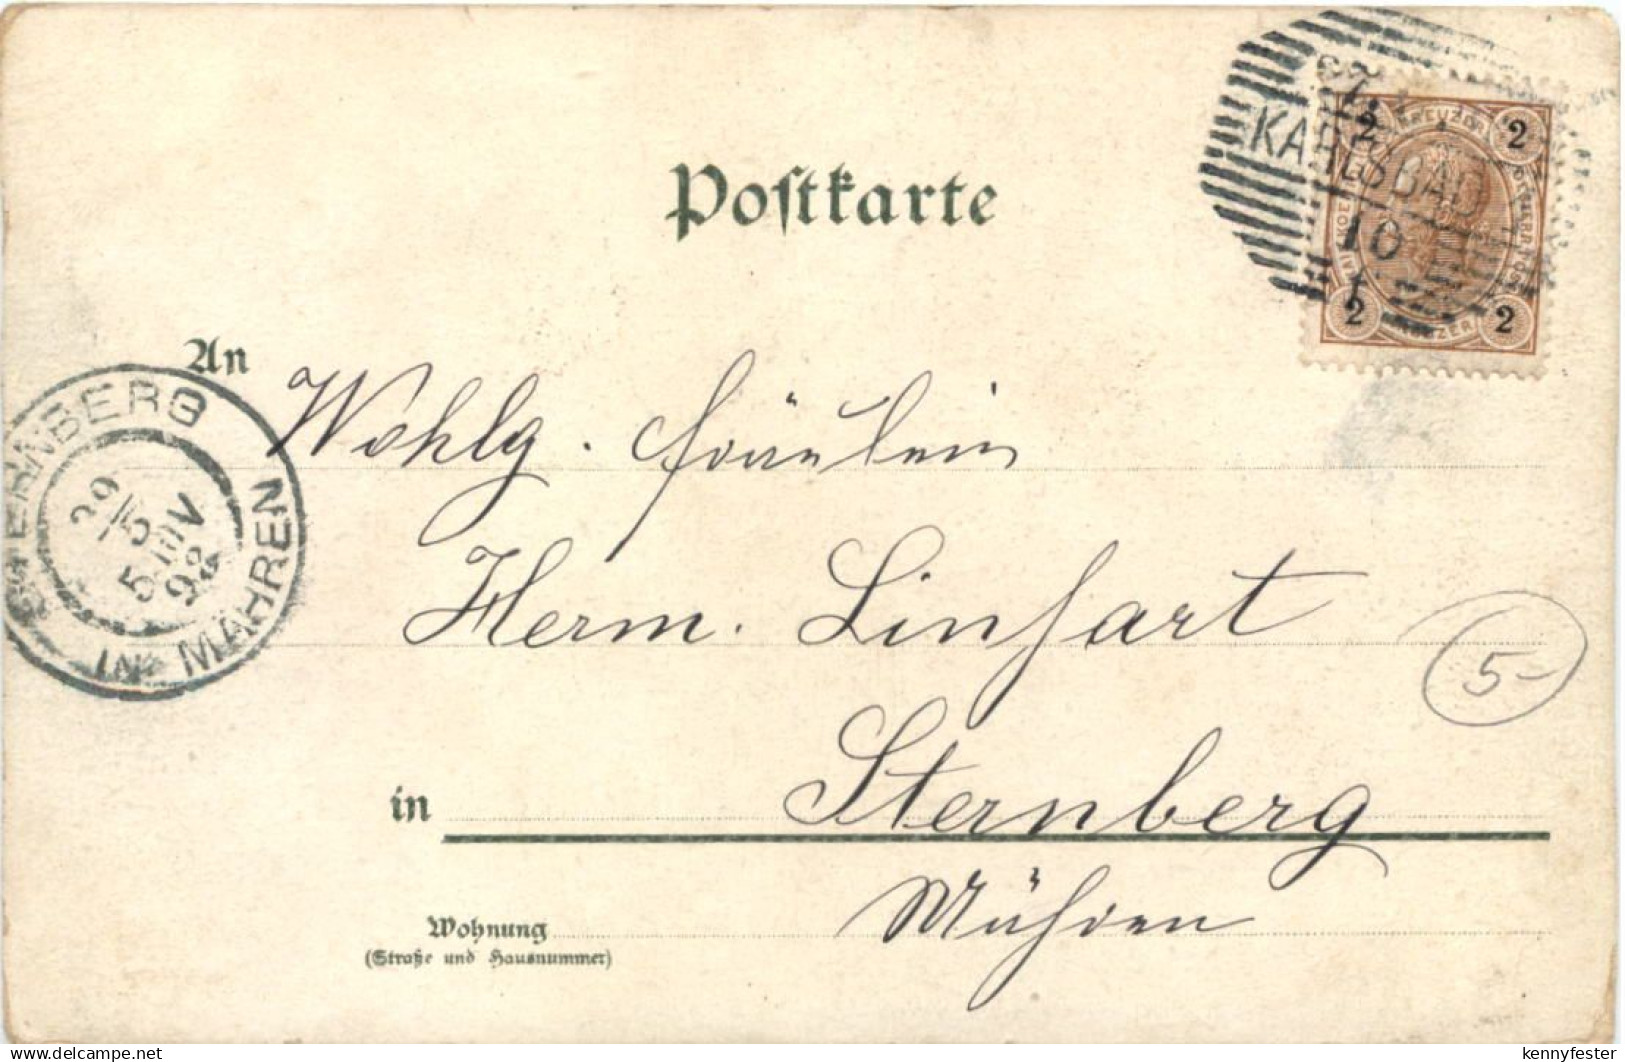 Postkarte
KARLSBAD
10
2 2
2 2
An
Wohlg. Fräulein
STERNBERG
29/5
98
IN MÄHREN
Herm. Linhart
5-
in Sternberg
Mähren
Wohnung
(Straße und Hausnummer)
delcampe.net
kennyfester